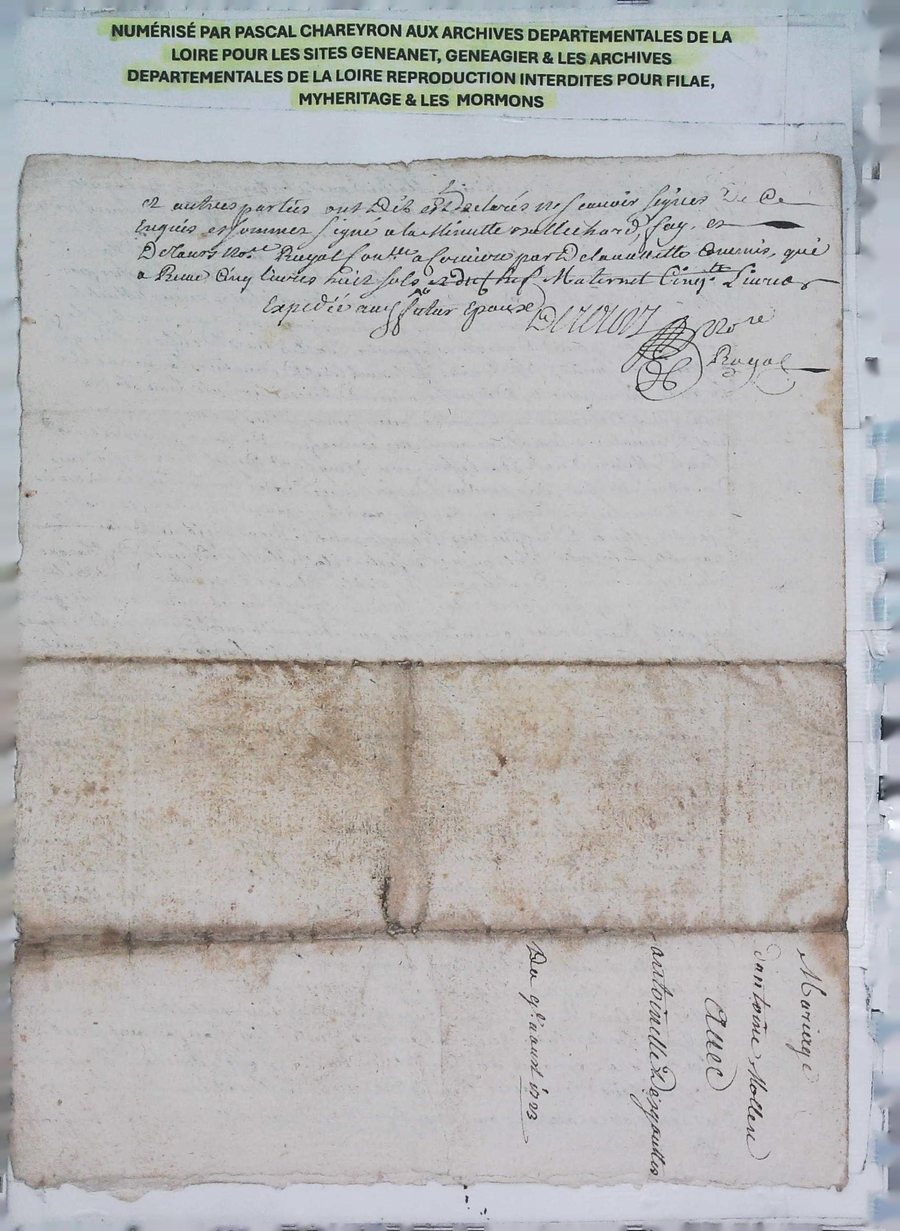 NUMÉRISÉ PAR PASCAL CHAREYRON AUX ARCHIVES DEPARTEMENTALES DE LA
LOIRE POUR LES SITES GENEANET, GENEAGIER & LES ARCHIVES
DEPARTEMENTALES DE LA LOIRE REPRODUCTION INTERDITES POUR FILAE,
MYHERITAGE & LES MORMONS
et autres parties ont declarés ne scauoir signer De Ce
Enquis et sommes signé a la Minutte fay, et
Royal par Commis, qui
a Reçu Cinq livres huit sols Maternel Cinq Livres
Expediée aux futur Epoux
Royal
Mariage
D'antoine Mollen
Auec
antoinette Desgouttes
Du aoust 1723